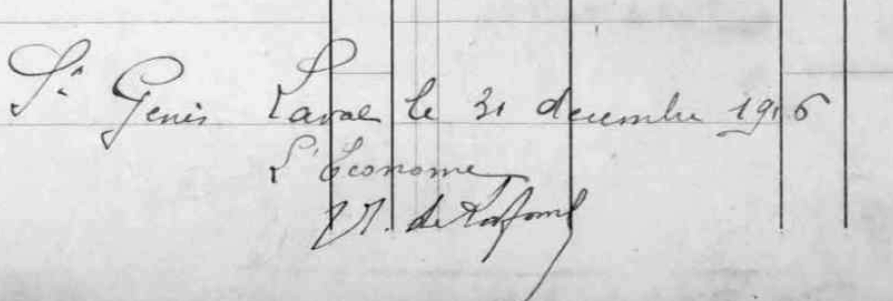 St Genis Laval le 31 décembre 1916
L'Econome
de